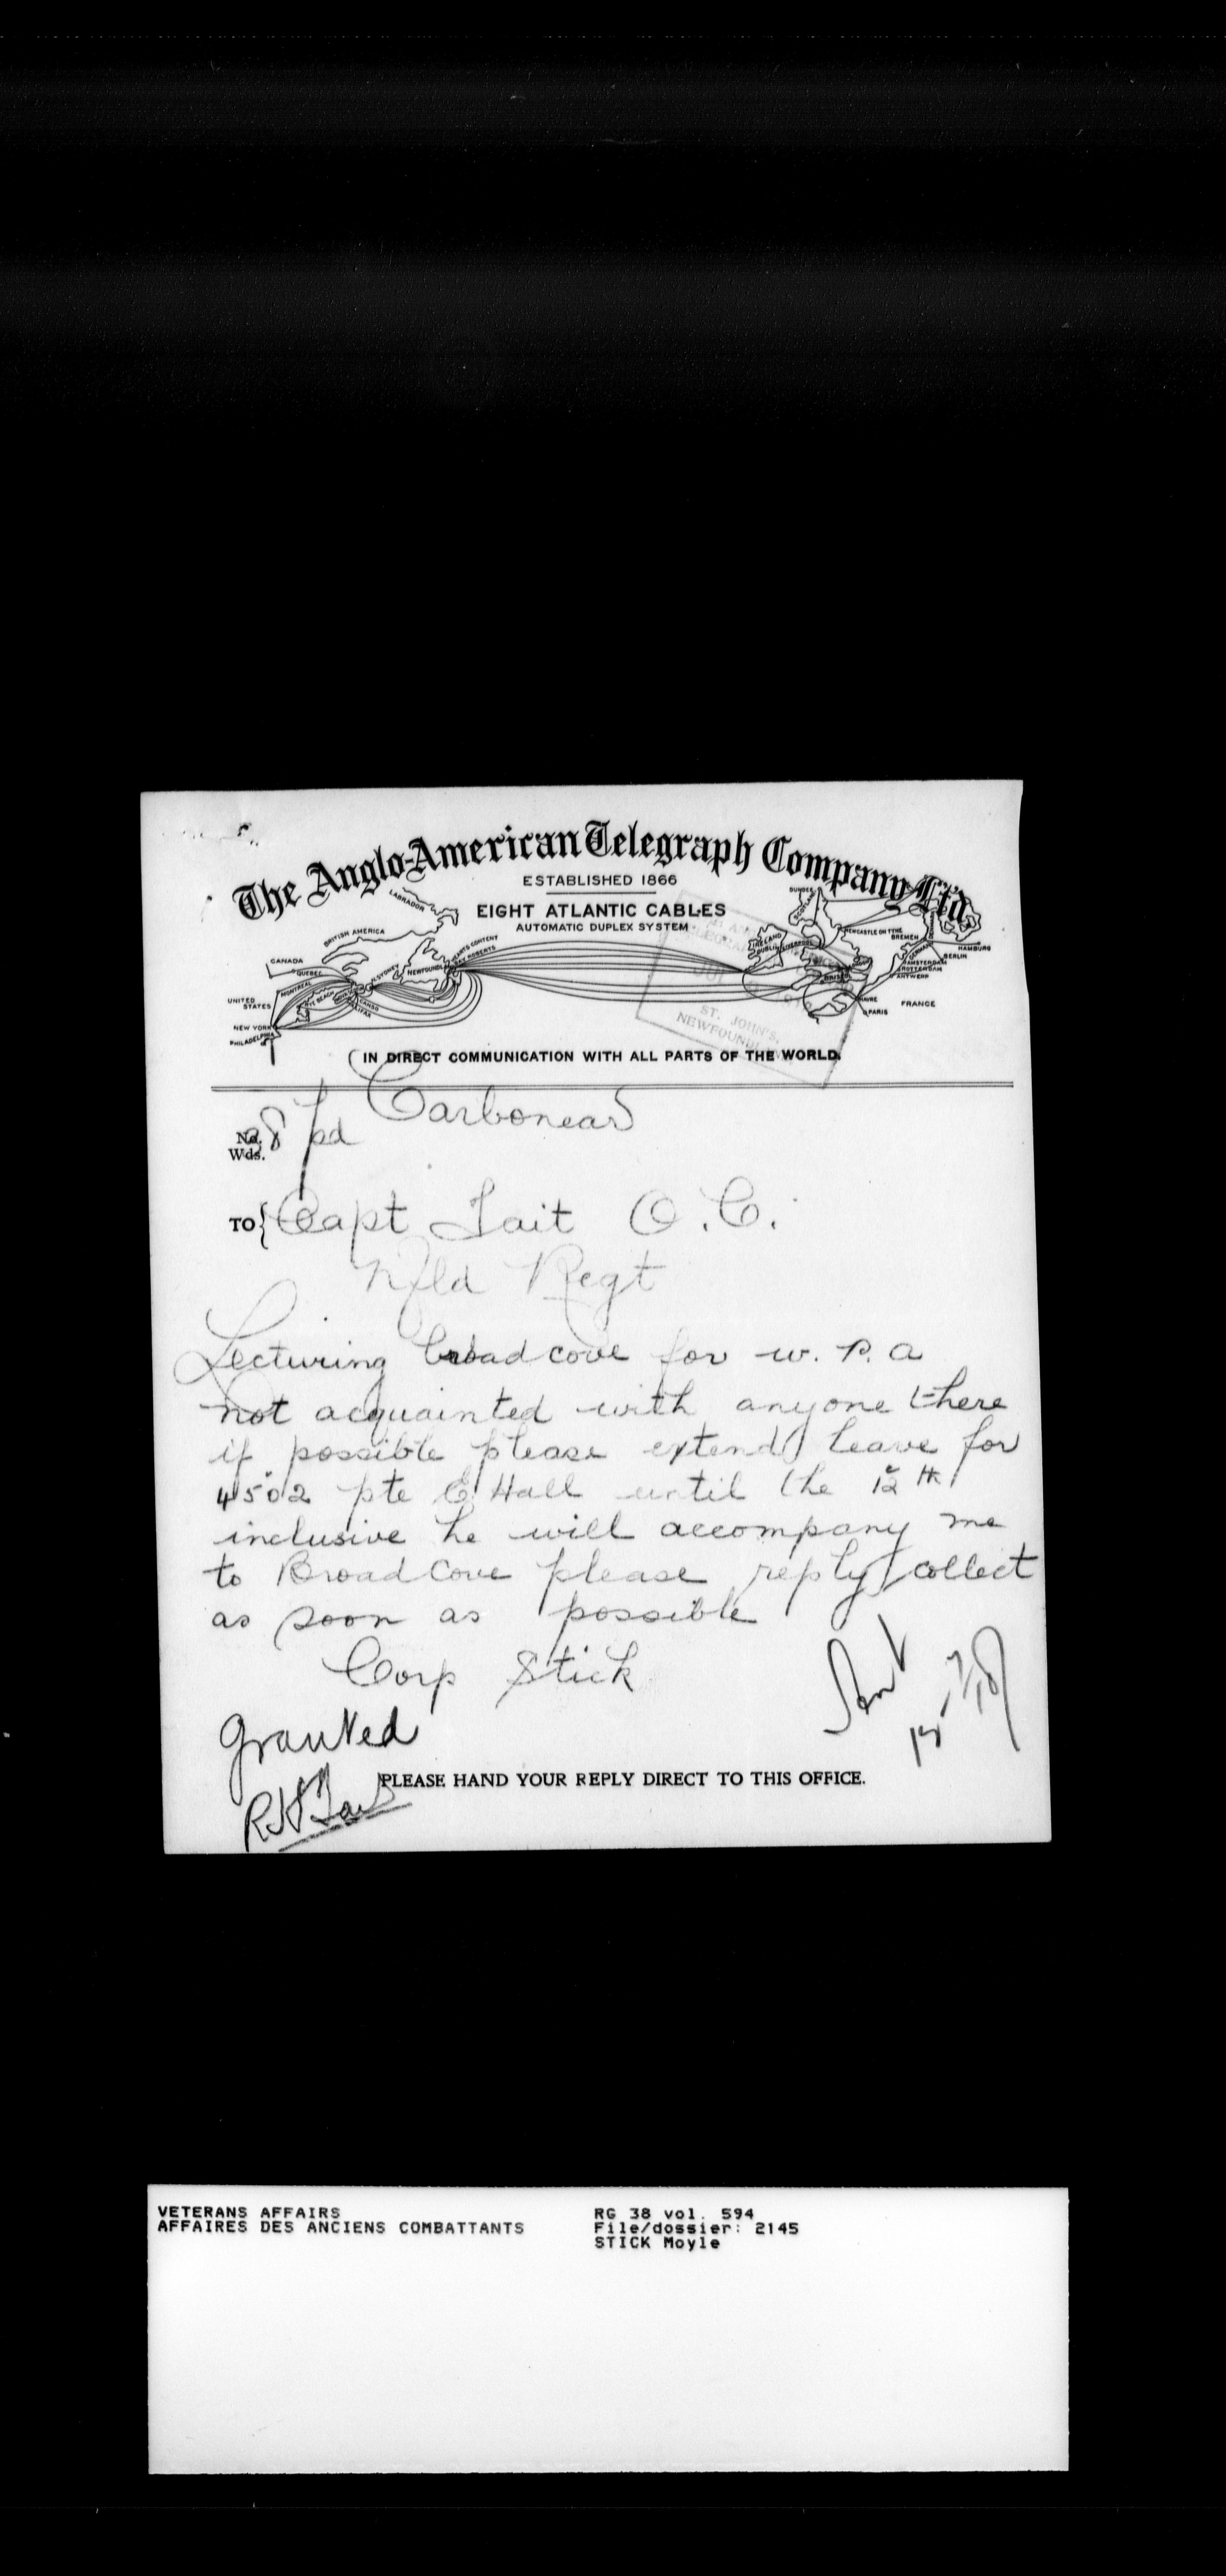 The Anglo-American Telegraph Company Ltd.
ESTABLISHED 1866
EIGHT ATLANTIC CABLES
AUTOMATIC DUPLEX SYSTEM
LABRADOR
BRITISH AMERICA
CANADA
QUEBEC
MONTREAL
UNITED STATES
NEW YORK
PHILADELPHIA
RYE BEACH
CANSO
HALIFAX
N. SYDNEY
NEWFOUND
HEARTS CONTENT
DUNDEE
SCOTLAND
IRELAND
DUBLIN
LIVERPOOL
NEWCASTLE ON TYNE
BREMEN
HAMBURG
BERLIN
GERMANY
AMSTERDAM
ROTTERDAM
ANTWERP
BRISTOL
HAVRE
PARIS
FRANCE
ST. JOHN'S,
NEWFOUNDLAND
IN DIRECT COMMUNICATION WITH ALL PARTS OF THE WORLD.
Carbonear
No. 38 pd
Wds.
TO Capt Tait O.C.
Nfld Regt
Lecturing broad cove for w. P. a
not acquainted with anyone there
if possible please extend leave for
4502 pte E Hall until the 12th
inclusive he will accompany me
to Broad Cove please reply collect
as soon as possible
Corp Stick
Granted
PLEASE HAND YOUR REPLY DIRECT TO THIS OFFICE.
R H Tait
VETERANS AFFAIRS
AFFAIRES DES ANCIENS COMBATTANTS
RG 38 vol. 594
File/dossier: 2145
STICK Moyle